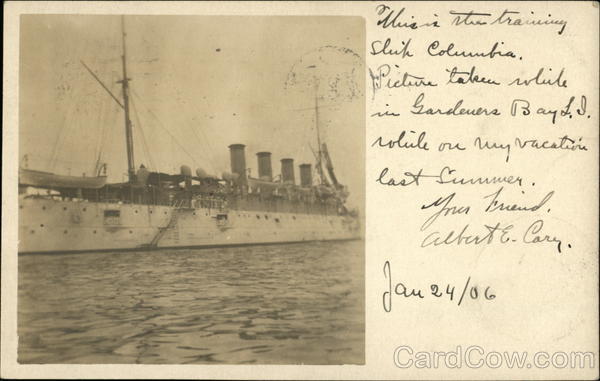 This is the training
Ship Columbia.
Picture taken while
in Gardeners Bay L.I.
while on my vacation
last Summer.
Your Friend.
Albert E. Cary.
Jan 24/06
CardCow.com